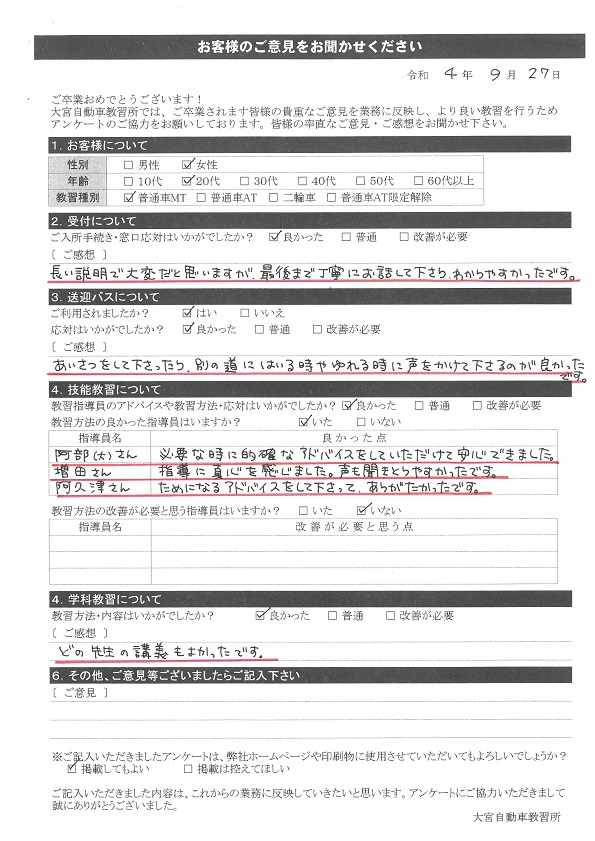 お客様のご意見をお聞かせください
令和 4 年 9 月 27 日
ご卒業おめでとうございます！
大宮自動車教習所では、ご卒業されます皆様の貴重なご意見を業務に反映し、より良い教習を行うため
アンケートのご協力をお願いしております。皆様の率直なご意見・ご感想をお聞かせ下さい。
1. お客様について
性別 □ 男性 ☑ 女性
年齢 □ 10代 ☑ 20代 □ 30代 □ 40代 □ 50代 □ 60代以上
教習種別 ☑ 普通車MT □ 普通車AT □ 二輪車 □ 普通車AT限定解除
2. 受付について
ご入所手続き・窓口応対はいかがでしたか？ ☑ 良かった □ 普通 □ 改善が必要
〔 ご感想 〕
長い説明で大変だと思いますが、最後まで丁寧にお話して下さり、わかりやすかったです。
3. 送迎バスについて
ご利用されましたか？ ☑ はい □ いいえ
応対はいかがでしたか？ ☑ 良かった □ 普通 □ 改善が必要
〔 ご感想 〕
あいさつをして下さったり、別の道にはいる時やゆれる時に声をかけて下さるのが良かった
です。
4. 技能教習について
教習指導員のアドバイスや教習方法・応対はいかがでしたか？ ☑ 良かった □ 普通 □ 改善が必要
教習方法の良かった指導員はいますか？ ☑ いた □ いない
指導員名 良かった点
阿部(大)さん 必要な時に的確なアドバイスをしていただけて安心できました。
増田さん 指導に真心を感じました。声も聞きとりやすかったです。
阿久津さん ためになるアドバイスをして下さって、ありがたかったです。
教習方法の改善が必要と思う指導員はいますか？ □ いた ☑ いない
指導員名 改善が必要と思う点
4. 学科教習について
教習方法・内容はいかがでしたか？ ☑ 良かった □ 普通 □ 改善が必要
〔 ご感想 〕
どの先生の講義もよかったです。
6. その他、ご意見等ございましたらご記入下さい
〔 ご意見 〕
※ご記入いただきましたアンケートは、弊社ホームページや印刷物に使用させていただいてもよろしいでしょうか？
☑ 掲載してもよい □ 掲載は控えてほしい
ご記入いただきました内容は、これからの業務に反映していきたいと思います。アンケートにご協力いただきまして
誠にありがとうございました。
大宮自動車教習所